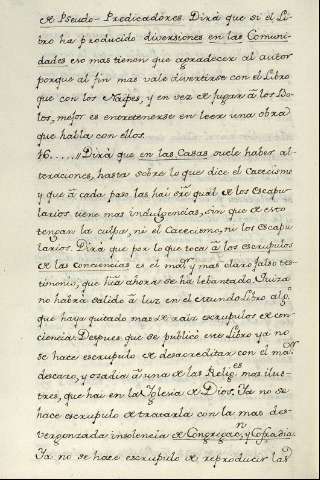 de Pseudo-Predicadores. Dirà que si el Li-
bro ha producido diversiones en las Comuni-
dades no mas tienen que agradecer al autor
porque al fin mas vale divertirse con el Libro
que con los Naipes, y en vez de jugar à los Bo-
los, mejor es entretenerse en leer una obra
que habla con ellos.
46.....// Dirà que en las Casas suele haber al-
teraciones, hasta sobre lo que dice el Catecismo
y que à cada paso las hai sre qual de los Escapu-
larios tiene mas indulgencias, sin que de esto
tengan la culpa, ni el Catecismo, ni los Escapu-
larios. Dirà que por lo que toca à los escrupulos
de las conciencias es el maor y mas claro falso tes-
timonio, que hta ahora se ha lebantado. Quiza
no habrà salido à luz en el mundo Libro algo
que haya quitado mas de raiz escrupulos de con-
ciencia. Despues que se publicò este Libro ya no
se hace escrupulo de desacreditar con el maor
descaro, y osadia à una de las Religes mas ilus-
tres, que hai en la Iglesia de Dios. Ya no se
hace escrupulo de tratarla con la mas des-
vergonzada insolencia de Congregaon, y Cofradia.
Ya no se hace escrupulo de reproducir las